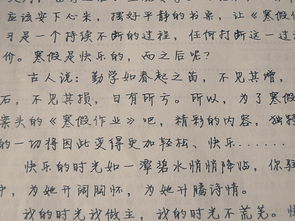 应该安下心来，摆好平静的书桌，让《寒假
习是一个持续不断的过程，任何打断这一过
价。寒假是快乐的，而之后呢？
古人说：勤学如春起之苗，不见其增，
石，不见其损，日有所亏。所以，为了寒假
案头的《寒假作业》吧，精彩的内容，独
的一切将因此变得更加轻松、快乐……
快乐的时光如一潭碧水悄悄降临，你轻
中，为她开阔胸怀，为她开腾诗情。
我的时光我做主，我的时光不荒芜。